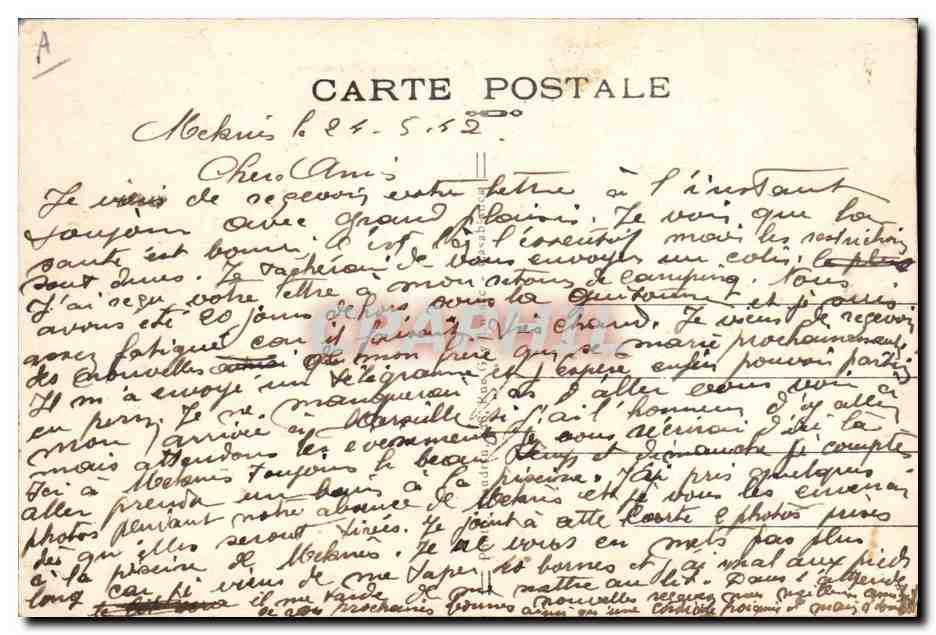 A
CARTE POSTALE
Meknès le 24-5-42
Chers Amis
Je viens de recevoir votre lettre à l'instant
toujours avec grand plaisir. Je vois que la
santé est bonne, c'est là l'essentiel mais les restrictions
sont dures. Je tâcherai de vous envoyer un colis,
J'ai reçu votre lettre à mon retour de camping. Nous
avons été 20 jours dehors sous la et je suis
assez fatigué car il faisait très chaud. Je viens de recevoir
des nouvelles de mon frère qui se marie prochainement,
Il m'a envoyé un télégramme et j'espère enfin pouvoir partir
en perm. Je ne manquerai pas d'aller vous voir à
mon arrivée à Marseille si j'ai l'honneur d'y aller
mais attendons les évènements je vous écrirai d'ici là
Ici à Meknès toujours le beau temps et dimanche je compte
aller prendre un bain à la piscine. J'ai pris quelques
photos pendant notre absence de Meknès et je vous les enverrai
dès qu'elles seront tirées. Je joint à cette carte 2 photos prises
à la piscine de Meknès. Je ne vous en mets pas plus
long car je viens de me taper 20 bornes et j'ai mal aux pieds
il me tarde de me mettre au lit. Dans l'attente
de vos prochaines bonnes nouvelles recevez mes meilleurs
ainsi qu'une cordiale poignée de main
Casablanca